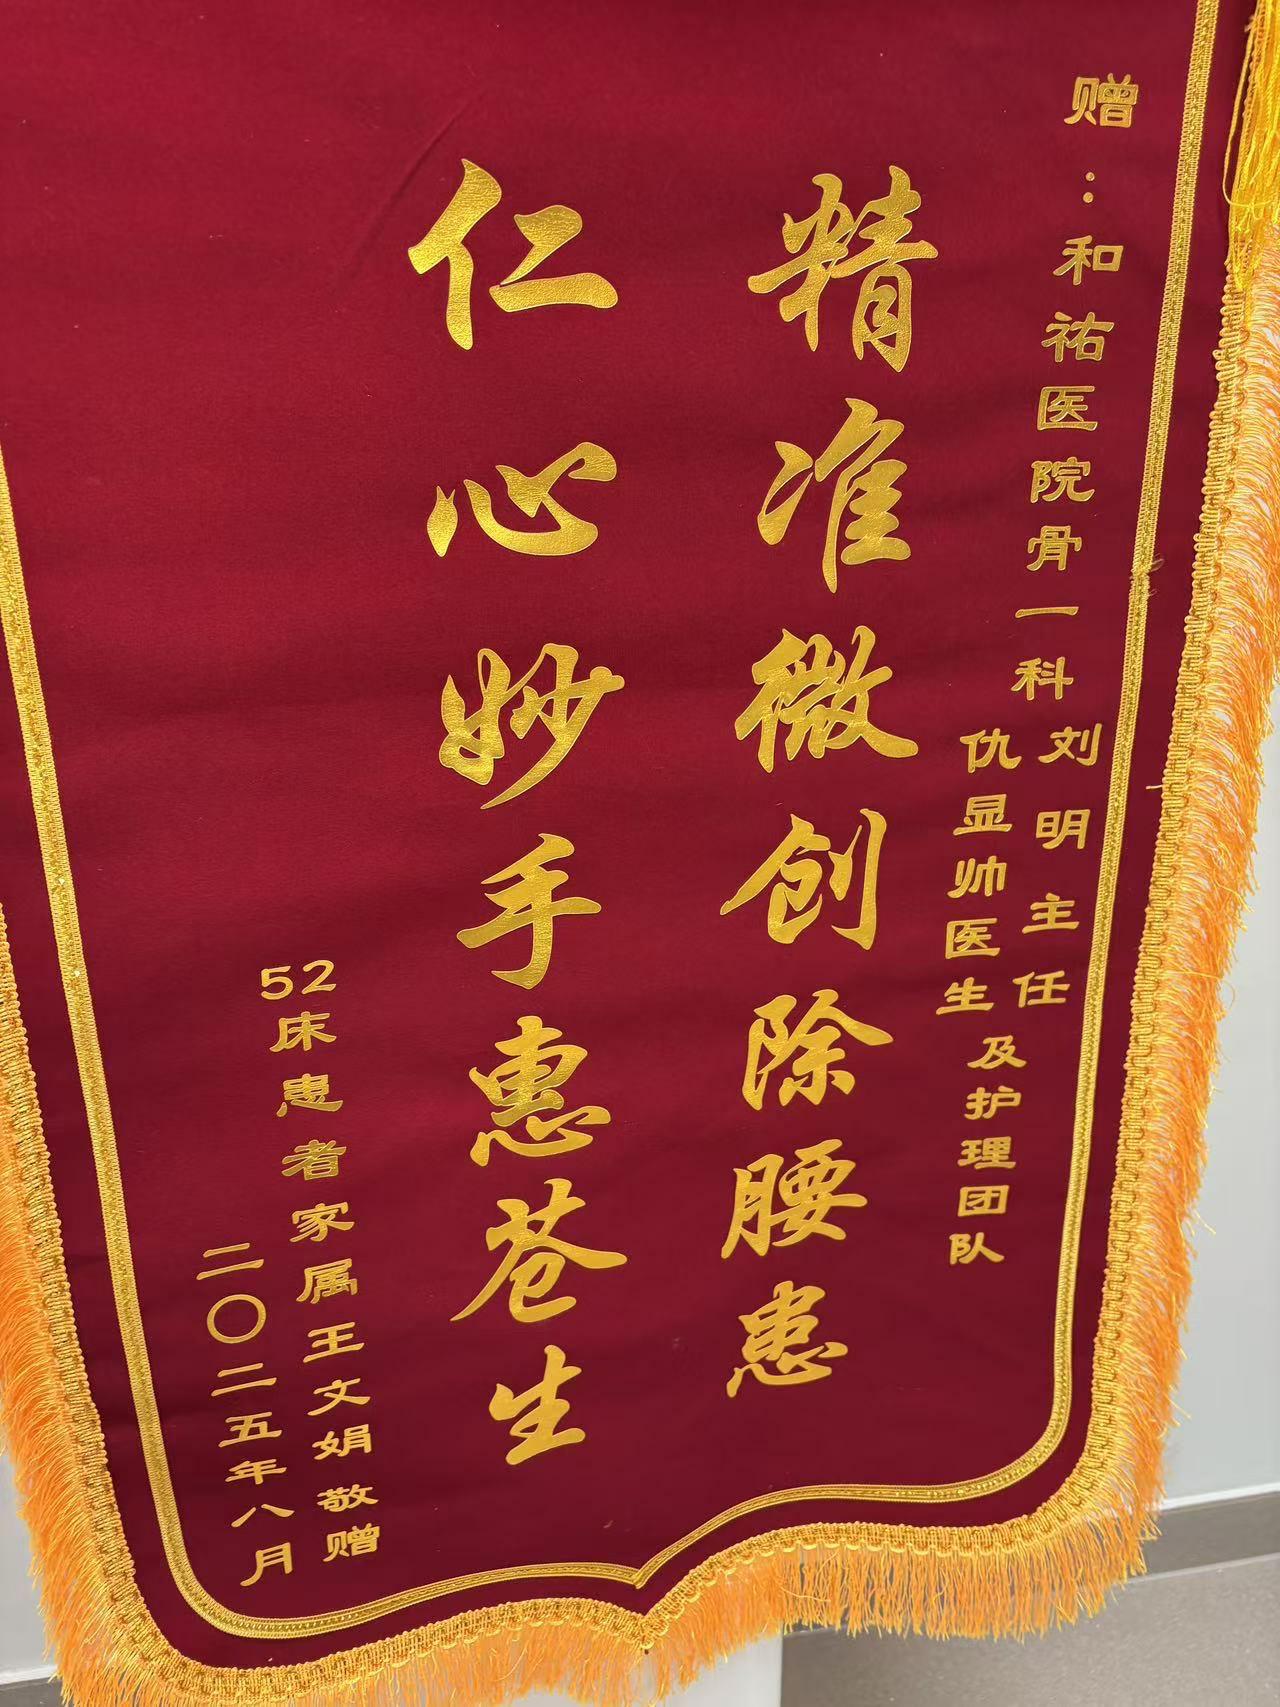 赠：和祐医院骨一科
刘明主任
仇显帅医生
及护理团队
精准微创除腰患
仁心妙手惠苍生
52床患者家属王文娟敬赠
二〇二五年八月